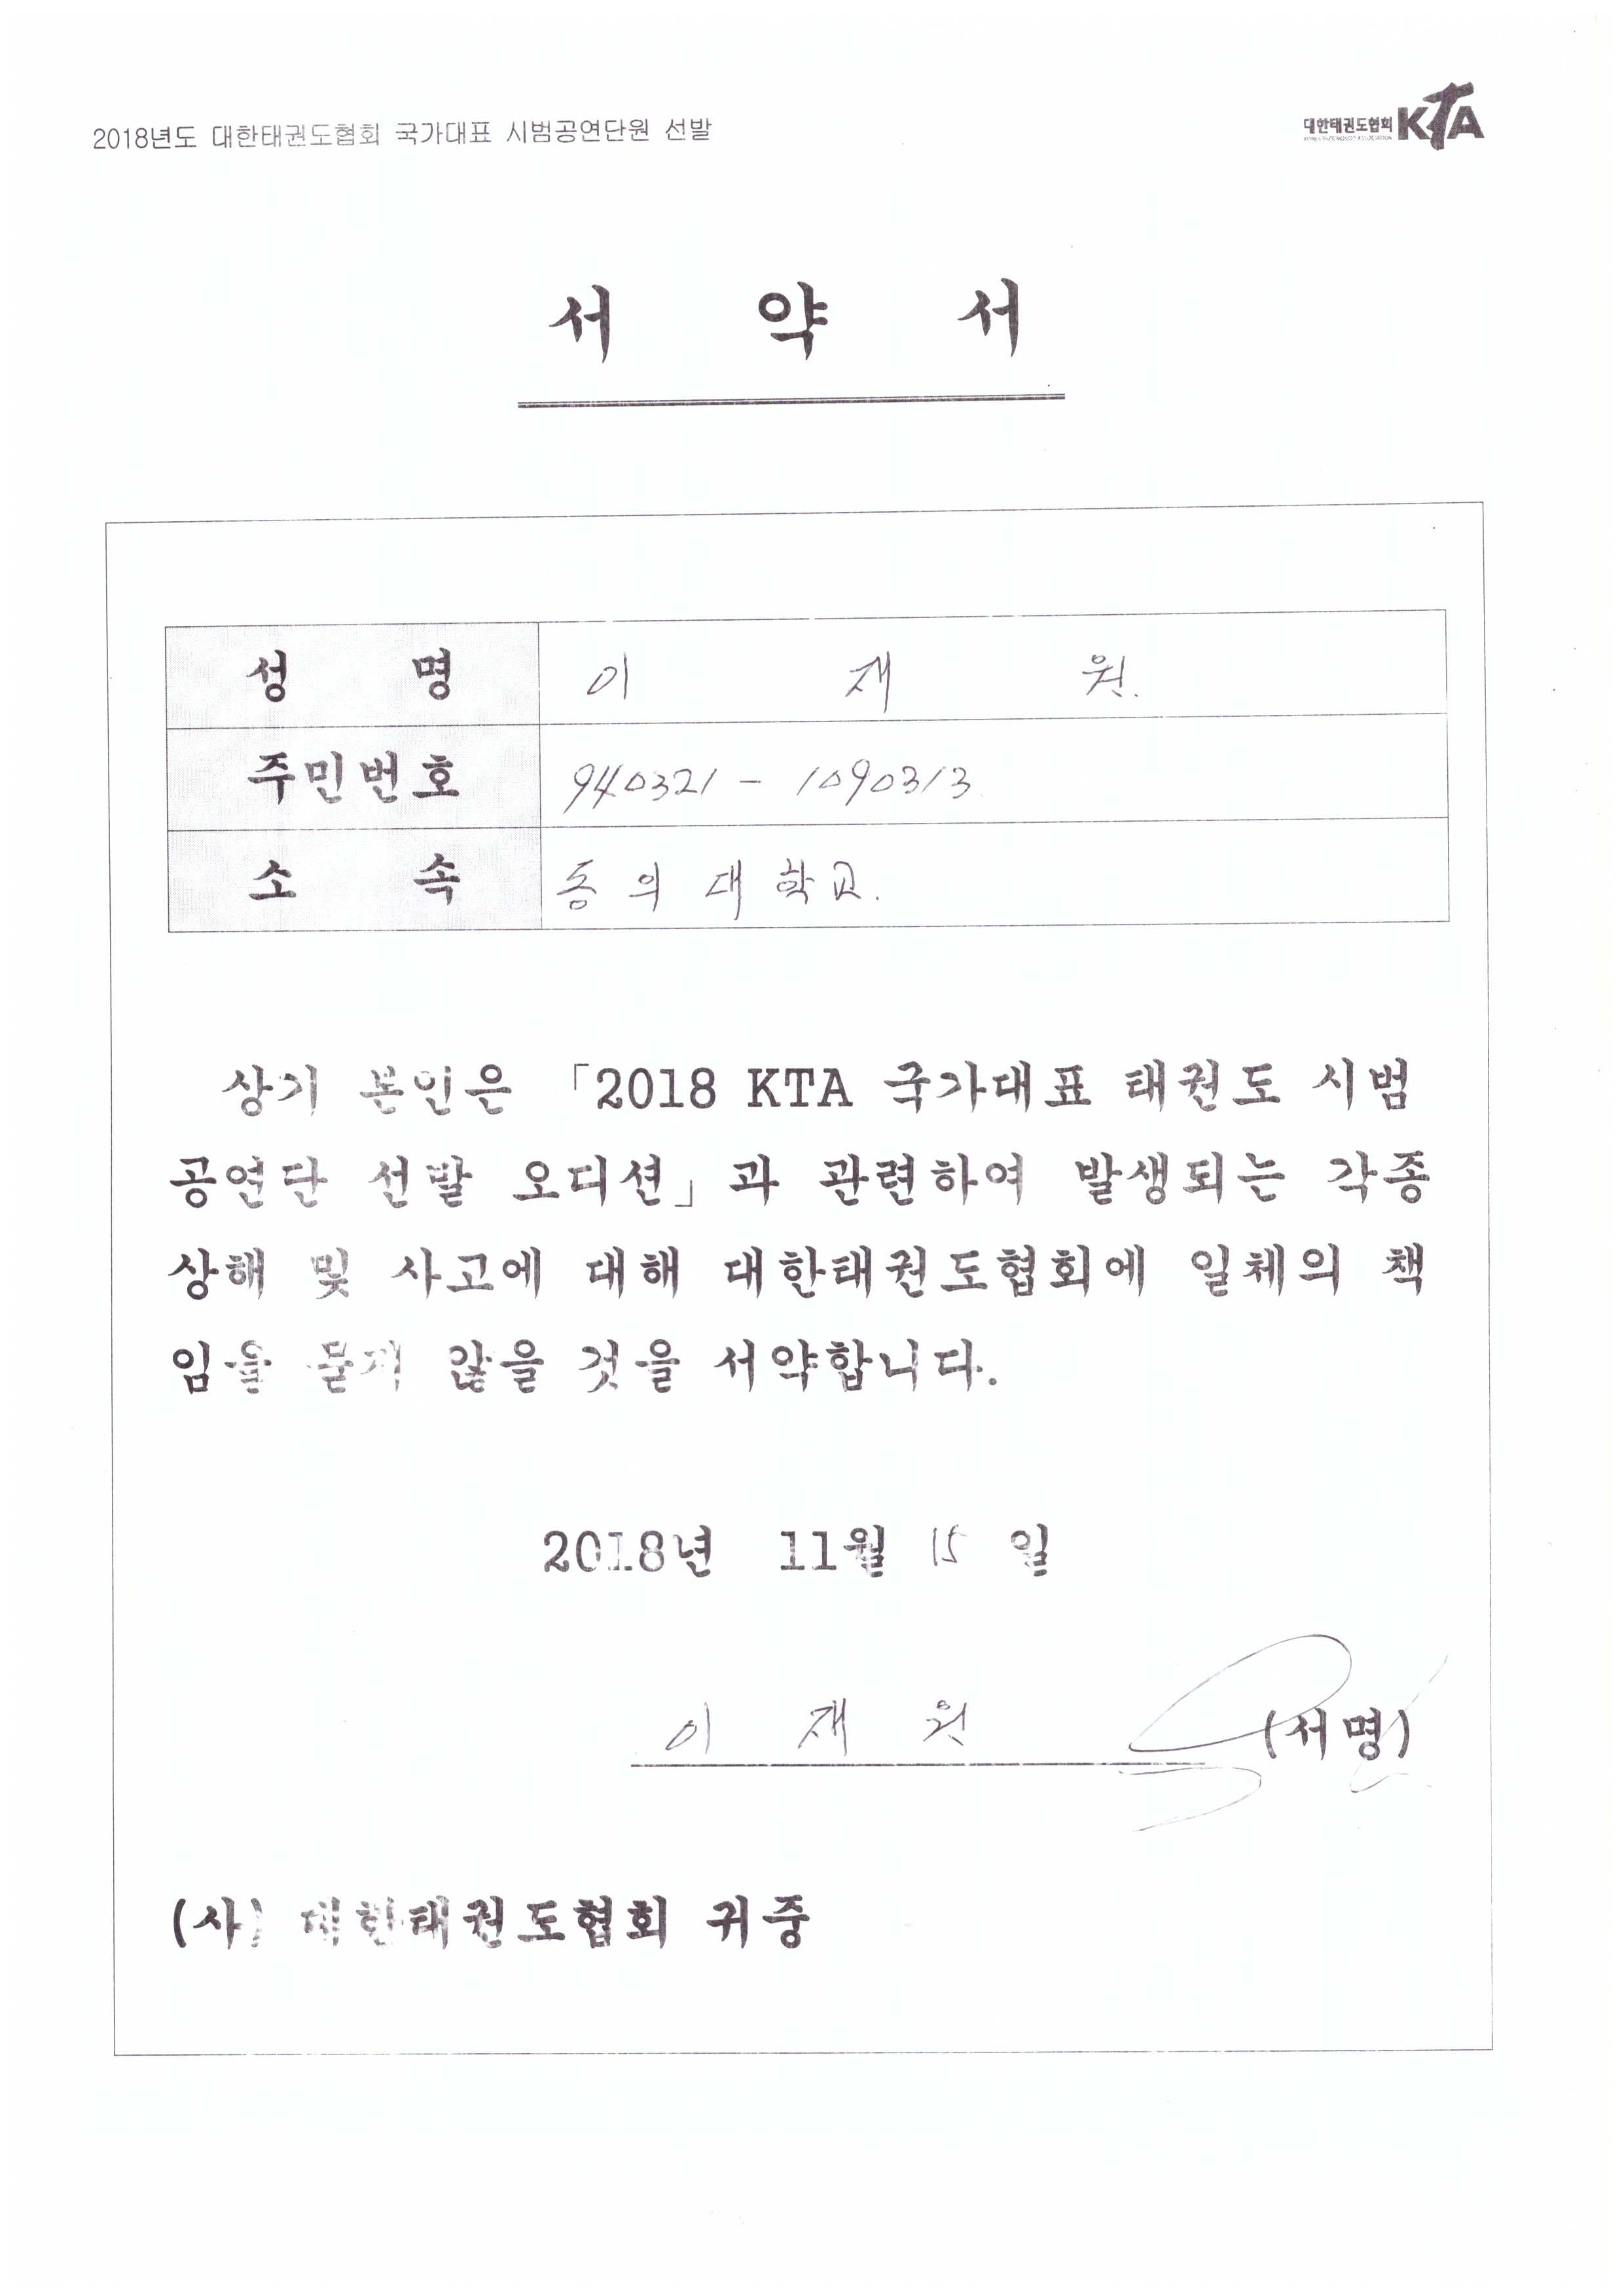 2018년도 대한태권도협회 국가대표 시범공연단원 선발
대한태권도협회 KTA
서 약 서
성 명 이 재 원.
주민번호 940321 - 1090313
소 속 동의대학교.
상기 본인은 「2018 KTA 국가대표 태권도 시범
공연단 선발 오디션」과 관련하여 발생되는 각종
상해 및 사고에 대해 대한태권도협회에 일체의 책
임을 묻지 않을 것을 서약합니다.
2018년 11월 15 일
이 재 원 (서명)
(사) 대한태권도협회 귀중